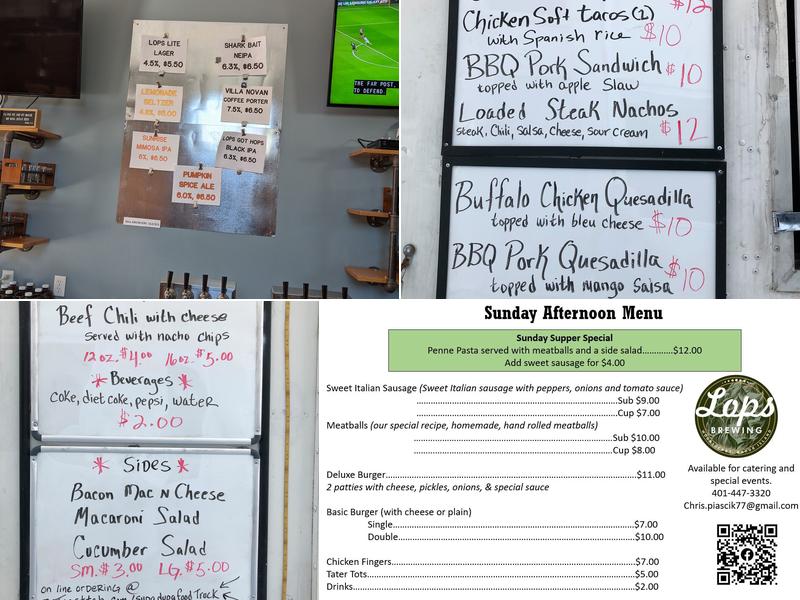 LOPS LITE
LAGER
4.5%, $5.50
SHARK BAIT
NEIPA
6.3%, $6.50
LEMONADE
SELTZER
VILLA NOVAN
COFFEE PORTER
7.5%, $6.50
SUNRISE
MIMOSA IPA
6%, $6.50
LOPS GOT HOPS
BLACK IPA
6.3%, $6.50
PUMPKIN
SPICE ALE
6.0%, $6.50
THE FAR POST,
TO DEFEND.
$12
Chicken Soft tacos(2)
with Spanish rice $10
BBQ Pork Sandwich $10
topped with apple Slaw
Loaded Steak Nachos
steak, Chili, Salsa, Cheese, Sour cream $12
Buffalo Chicken Quesadilla
topped with bleu cheese $10
BBQ Pork Quesadilla $10
topped with mango Salsa
Beef Chili with cheese
served with nacho chips
12oz. $4.00 16oz. $5.00
* Beverages *
coke, diet coke, pepsi, water
$2.00
* Sides *
Bacon Mac N Cheese
Macaroni Salad
Cucumber Salad
Sm. $3.00 LG. $5.00
on line ordering @
Sunday Afternoon Menu
Sunday Supper Special
Penne Pasta served with meatballs and a side salad.............$12.00
Add sweet sausage for $4.00
Sweet Italian Sausage (Sweet Italian sausage with peppers, onions and tomato sauce)
Sub $9.00
Cup $7.00
Meatballs (our special recipe, homemade, hand rolled meatballs)
Sub $10.00
Cup $8.00
Deluxe Burger $11.00
2 patties with cheese, pickles, onions, & special sauce
Basic Burger (with cheese or plain)
Single $7.00
Double $10.00
Chicken Fingers $7.00
Tater Tots $5.00
Drinks $2.00
Lops
BREWING
Available for catering and
special events.
401-447-3320
Chris.piascik77@gmail.com